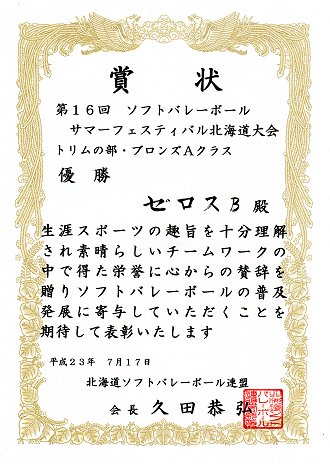 賞状
第16回 ソフトバレーボール
サマーフェスティバル北海道大会
トリムの部・ブロンズAクラス
優勝
ゼロスB 殿
生涯スポーツの趣旨を十分理解
され素晴らしいチームワークの
中で得た栄誉に心からの賛辞を
贈りソフトバレーボールの普及
発展に寄与していただくことを
期待して表彰いたします
平成23年 7月17日
北海道ソフトバレーボール連盟
会長 久田恭弘